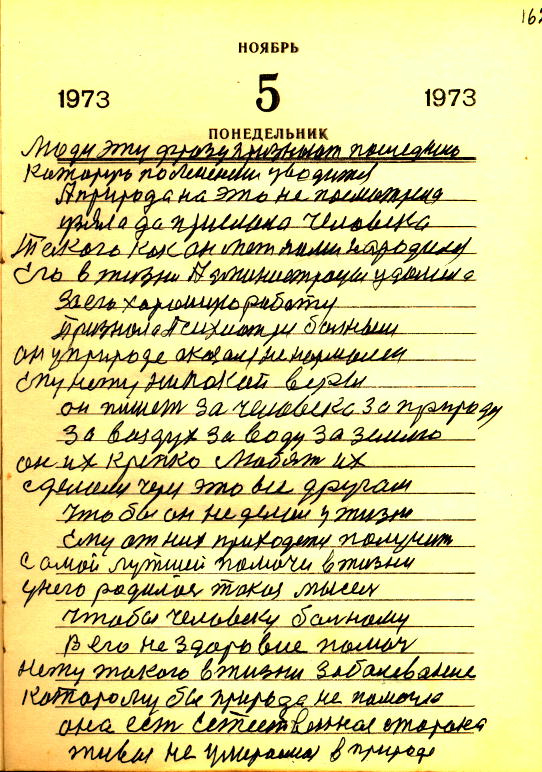 162
НОЯБРЬ
1973 5 1973
ПОНЕДЕЛЬНИК
Люди эту фразу признают последнию
которую по болезни уводится
А природа на это не посмотрела
узяла да прислала человека
Такого как он нет нами народили
Его в жизни Администрация удалила
За его хорошую работу
признала Психиатри больным
он у природе оказал ненормален
Ему нету никакой веры
он пишет за человека за природу
за воздух за воду за землю
он их крепко любят их
сделали чем это все другам
что бы он не делал у жизни
Ему от них приходети получит
самой лутшей помочи в жизни
у него родилас такая мысел
чтобы человеку больному
В его не здоровие помоч
нету такого в жизни заболевание
которому бы природа не помогла
она ест естественная сторона
живая не умирамая в природе